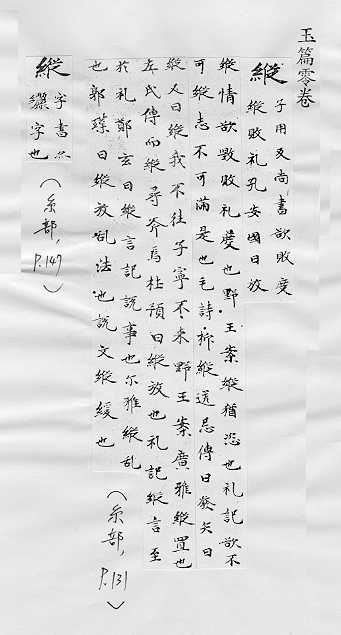 玉篇零卷
縱 子用反尚書欲敗度
縱敗礼孔安國曰放
縱情欲毀敗礼度也野王案縱猶恣也礼記欲不
可縱志不可滿是也毛詩抑縱送忌傳曰發矢曰
縱又曰縱我不往子寧不來野王案廣雅縱置也
左氏傳而縱尋斧焉杜預曰縱放也礼記縱言至
於礼鄭玄曰縱言記說事也尔雅縱乱
也郭璞曰縱放乱法也說文縱緩也
（糸部，P.131）
縱 字書尒
字也
（糸部，P.147）